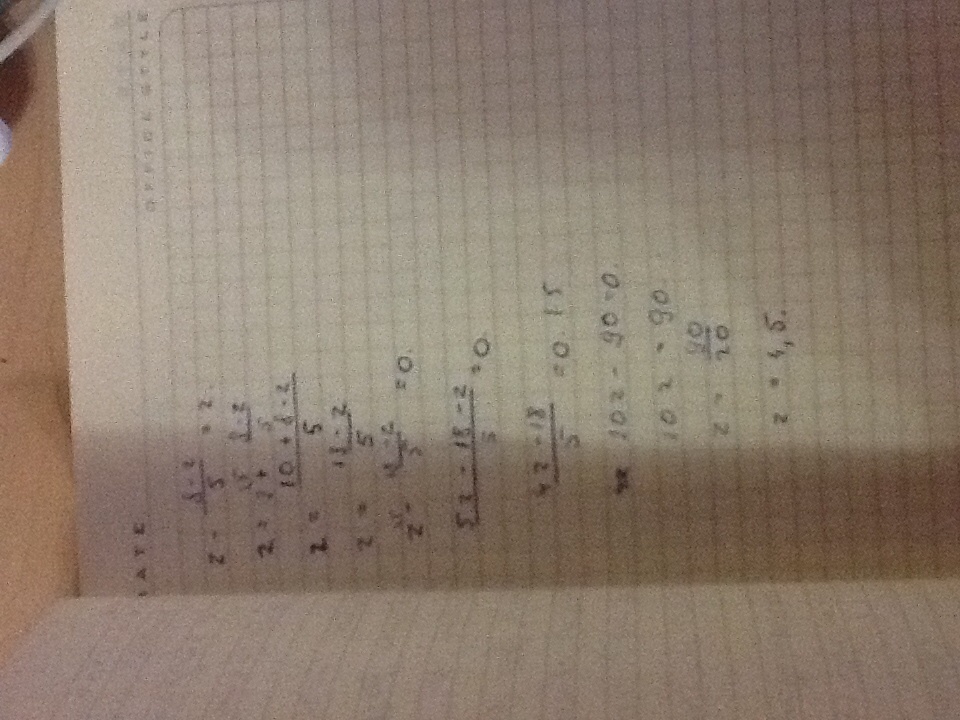 DATE
OFFICE STYLE
z - (8-z)/5 = 2.
z = 2 + (8-z)/5
z = (10 + 8 - z)/5
z = (18-z)/5
z - (18-z)/5 = 0.
(5z - 18 - z)/5 = 0
(4z - 18)/5 = 0 · 15
10z - 90 = 0.
10z = 90
z = 90/20
z = 4,5.